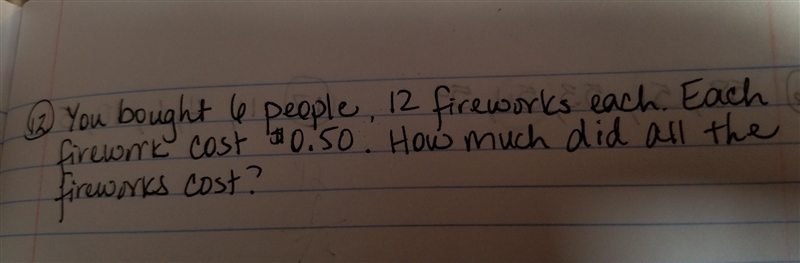 12 You bought 6 people, 12 fireworks each. Each
firework cost $0.50. How much did all the
fireworks cost?